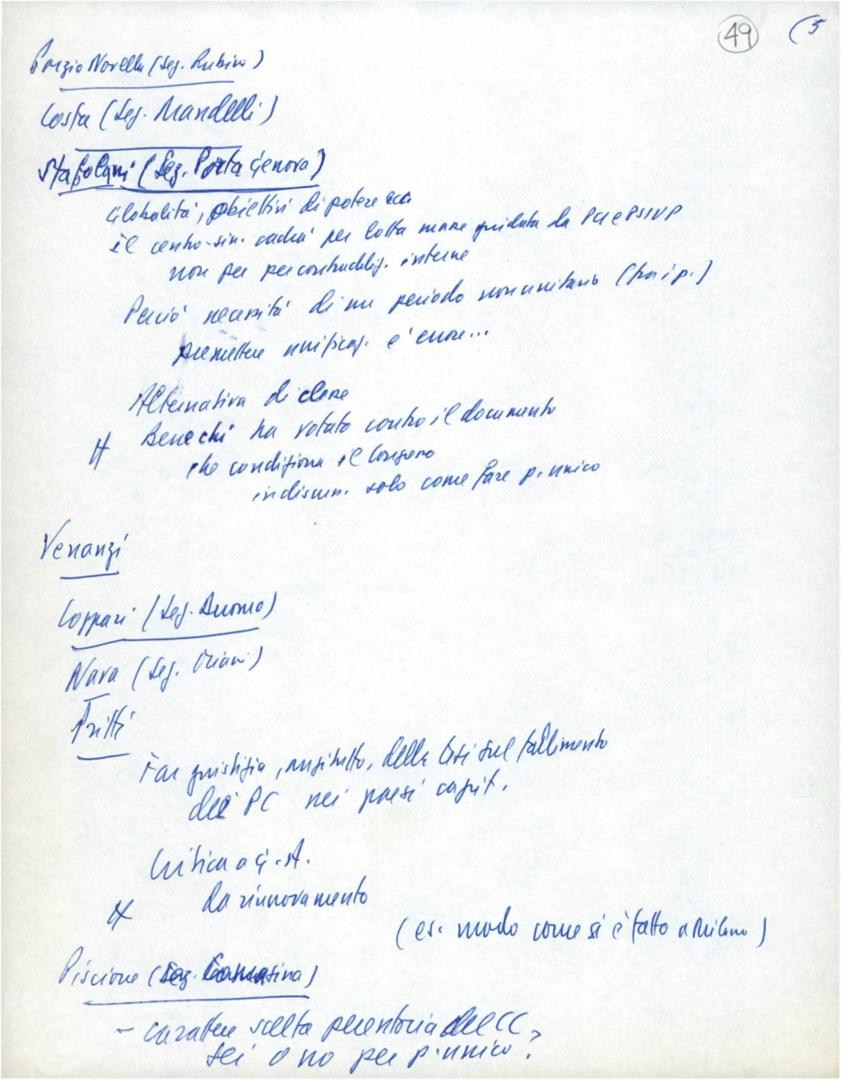 49 (5
Porzio Novella (Sez. Rubino)
Costa (Sez. Mandelli)
Stafolani (Sez. Porta Genova)
Globalità, obiettivi di potere ecc
il centro-sin. cadrà per lotta masse guidata da PCI e PSIUP
non per contraddiz. interne
Perciò necessità di un periodo non unitario (tra i p.)
premettere unificaz. è errore...
Alternativa di classe
H Benechi ha votato contro il documento
che condiziona il Congresso
in discuss. solo come fare p. unico
Venanzi
Coppari (Sez. Duomo)
Nava (Sez. Oriani)
Tritti
Far giustizia, anzitutto, della tesi sul fallimento
dei PC nei paesi capit.
Critica a G. A.
da rinnovamento
(es. modo come si è fatto a Milano)
Piscione (Sez. Comasina)
- carattere scelta perentoria del CC?
sei o no per p. unico?